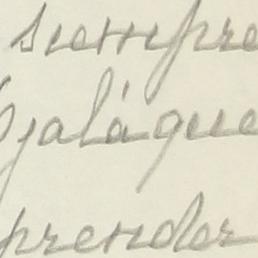 siempre
Ojaláque
prender